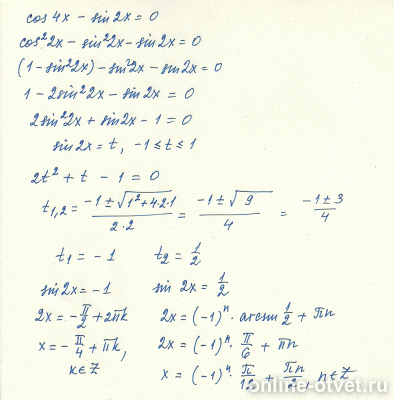 cos 4x − sin 2x = 0
cos²2x − sin²2x − sin 2x = 0
(1 − sin²2x) − sin²2x − sin 2x = 0
1 − 2sin²2x − sin 2x = 0
2sin²2x + sin 2x − 1 = 0
sin 2x = t, −1 ≤ t ≤ 1
2t² + t − 1 = 0
t₁,₂ = (−1 ± √(1² + 4·2·1))/(2·2) = (−1 ± √9)/4 = (−1 ± 3)/4
t₁ = −1 t₂ = 1/2
sin 2x = −1 sin 2x = 1/2
2x = −π/2 + 2πk 2x = (−1)ⁿ · arcsin 1/2 + πn
x = −π/4 + πk, 2x = (−1)ⁿ · π/6 + πn
k ∈ Z x = (−1)ⁿ · π/12 + πn/2, n ∈ Z
online-otvet.ru